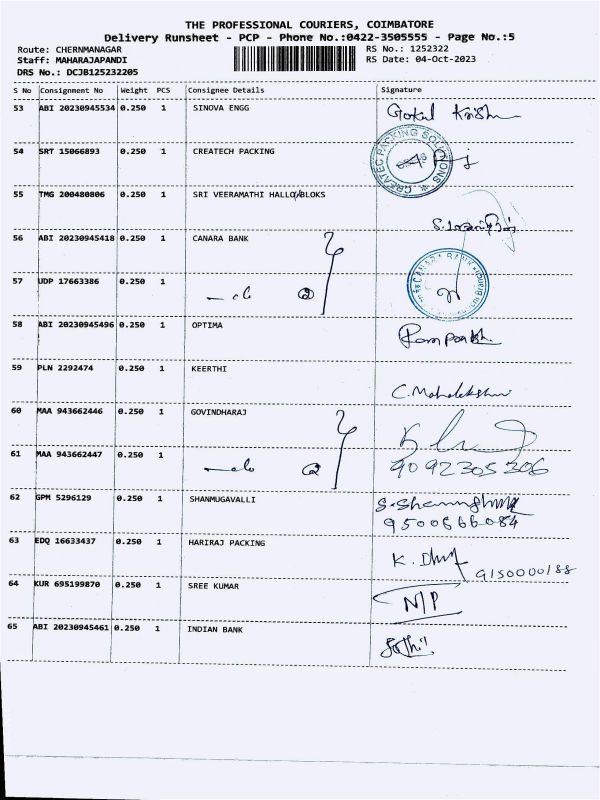 THE PROFESSIONAL COURIERS, COIMBATORE
Delivery Runsheet - PCP - Phone No.:0422-3505555 - Page No.:5
Route: CHERNMANAGAR RS No.: 1252322
Staff: MAHARAJAPANDI RS Date: 04-Oct-2023
DRS No.: DCJB125232205
S No Consignment No Weight PCS Consignee Details Signature
53 ABI 20230945534 0.250 1 SINOVA ENGG Gokul Krish
54 SRT 15066893 0.250 1 CREATECH PACKING CREATEC PACKING SOLUTIONS
55 TMG 200480806 0.250 1 SRI VEERAMATHI HALLOWBLOKS
56 ABI 20230945418 0.250 1 CANARA BANK
57 UDP 17663386 0.250 1 CANARA BANK
58 ABI 20230945496 0.250 1 OPTIMA
59 PLN 2292474 0.250 1 KEERTHI C. Mahalekshmi
60 MAA 943662446 0.250 1 GOVINDHARAJ
61 MAA 943662447 0.250 1 9092305306
62 GPM 5296129 0.250 1 SHANMUGAVALLI
9500866084
63 EDQ 16633437 0.250 1 HARIRAJ PACKING K. 9150000188
64 KUR 695199870 0.250 1 SREE KUMAR N/P
65 ABI 20230945461 0.250 1 INDIAN BANK